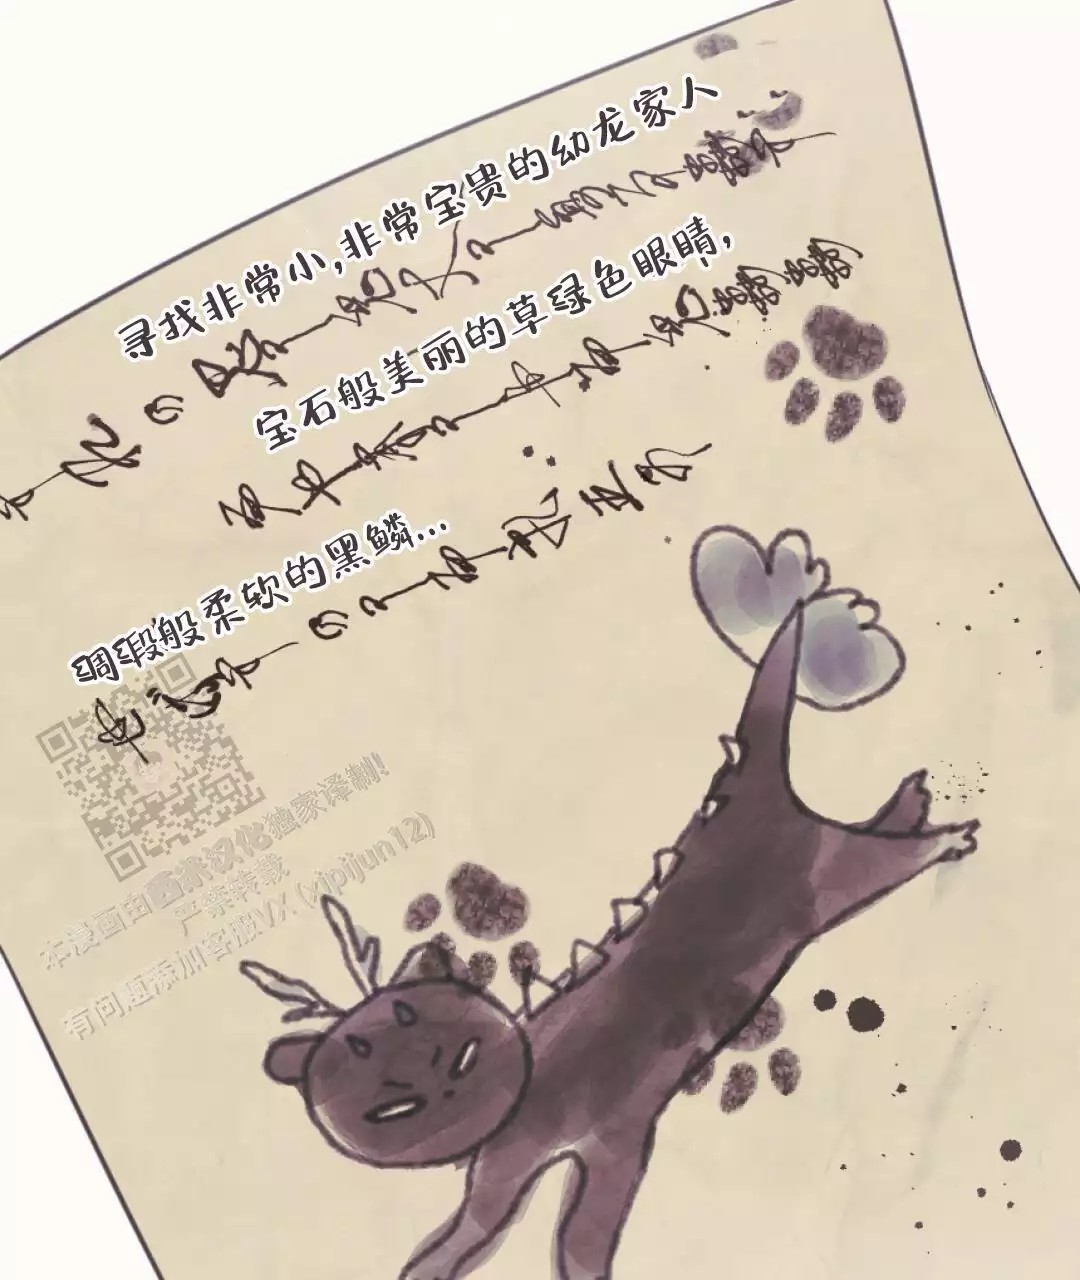 寻找非常小,非常宝贵的幼龙家人
宝石般美丽的草绿色眼睛,
绸缎般柔软的黑鳞...
本漫画由西米汉化独家译制!
严禁转载
有问题添加客服VX (xipijun12)